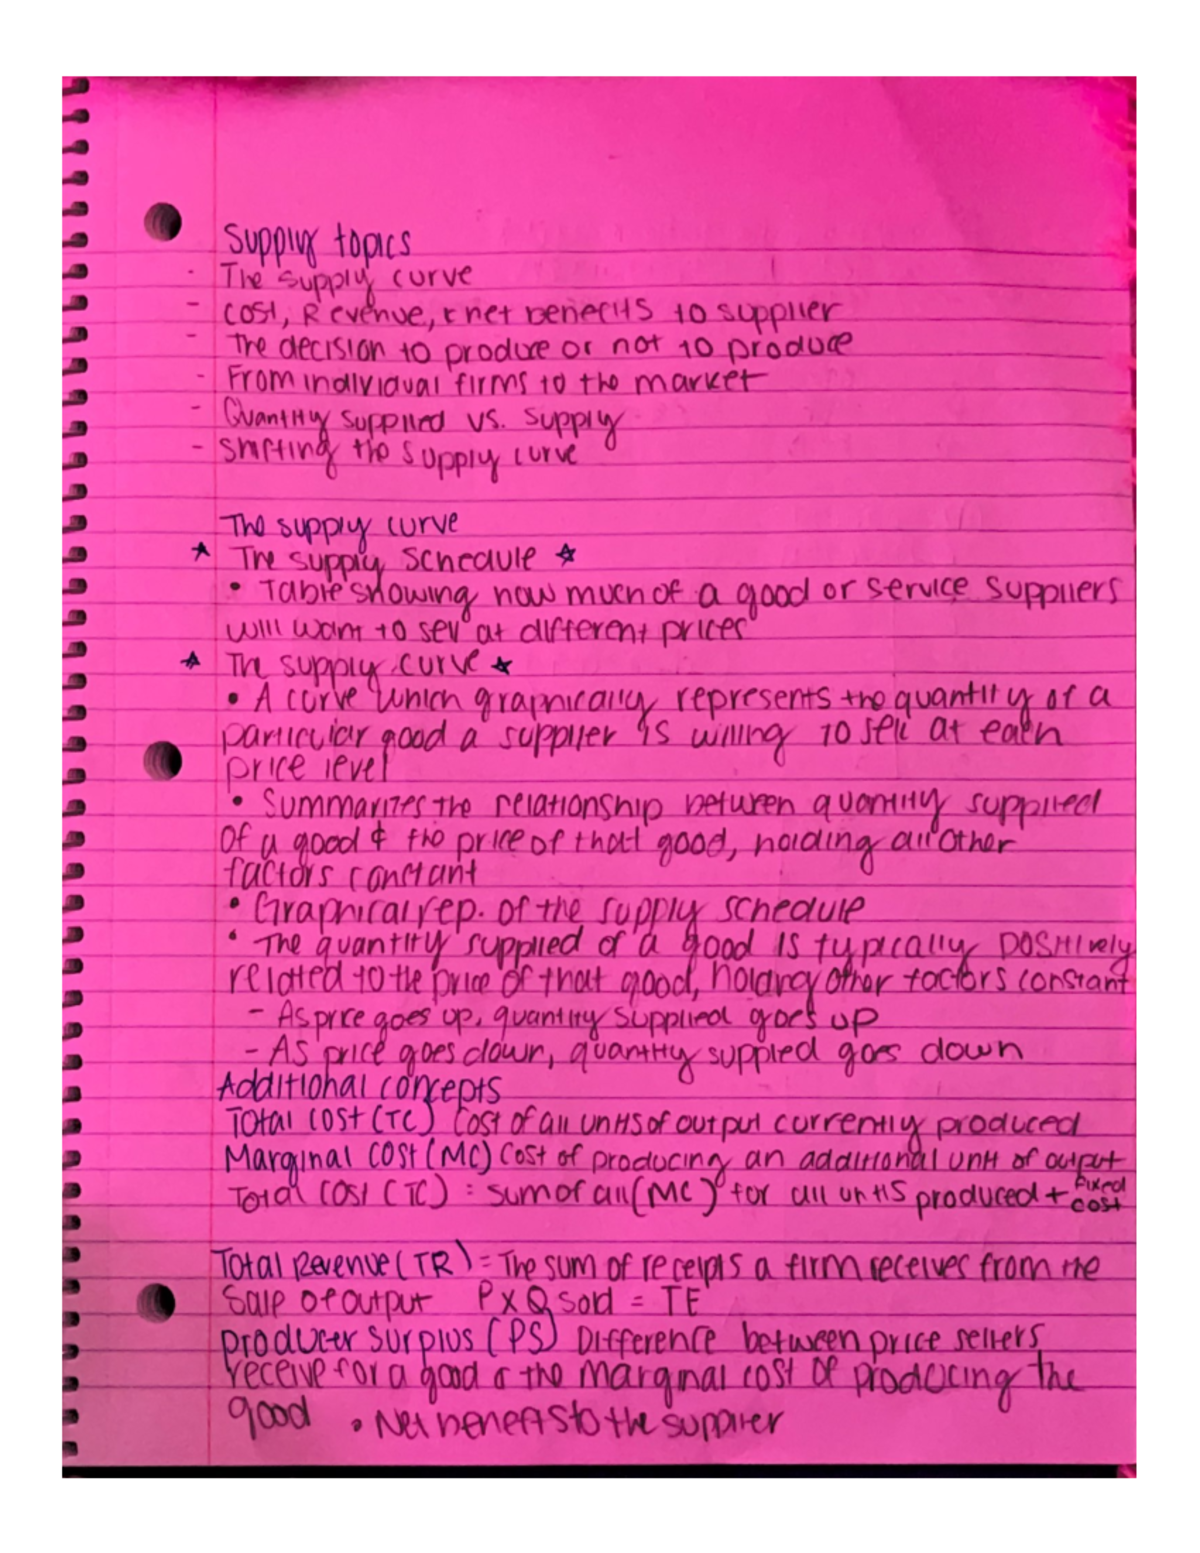 Supply topics
- The supply curve
- Cost, Revenue, & net benefits to supplier
- The decision to produce or not to produce
- From individual firms to the market
- Quantity supplied vs. supply
- Shifting the supply curve
The supply curve
☆ The supply schedule ☆
• Table showing how much of a good or service suppliers
will want to sell at different prices
☆ The supply curve ☆
• A curve which graphically represents the quantity of a
particular good a supplier is willing to sell at each
price level
• Summarizes the relationship between quantity supplied
of a good & the price of that good, holding all other
factors constant
• Graphical rep. of the supply schedule
• The quantity supplied of a good is typically positively
related to the price of that good, holding other factors constant
- As price goes up, quantity supplied goes up
- As price goes down, quantity suppled goes down
Additional concepts
Total cost (TC) Cost of all units of output currently produced
Marginal cost (MC) Cost of producing an additional unit of output
Total cost (TC) : sum of all (MC) for all units produced + fixed cost
Total Revenue (TR) = The sum of receipts a firm receives from the
Sale of output P x Q sold = TE
producer surplus (PS) Difference between price sellers
receive for a good & the marginal cost of producing the
good • Net benefits to the supplier